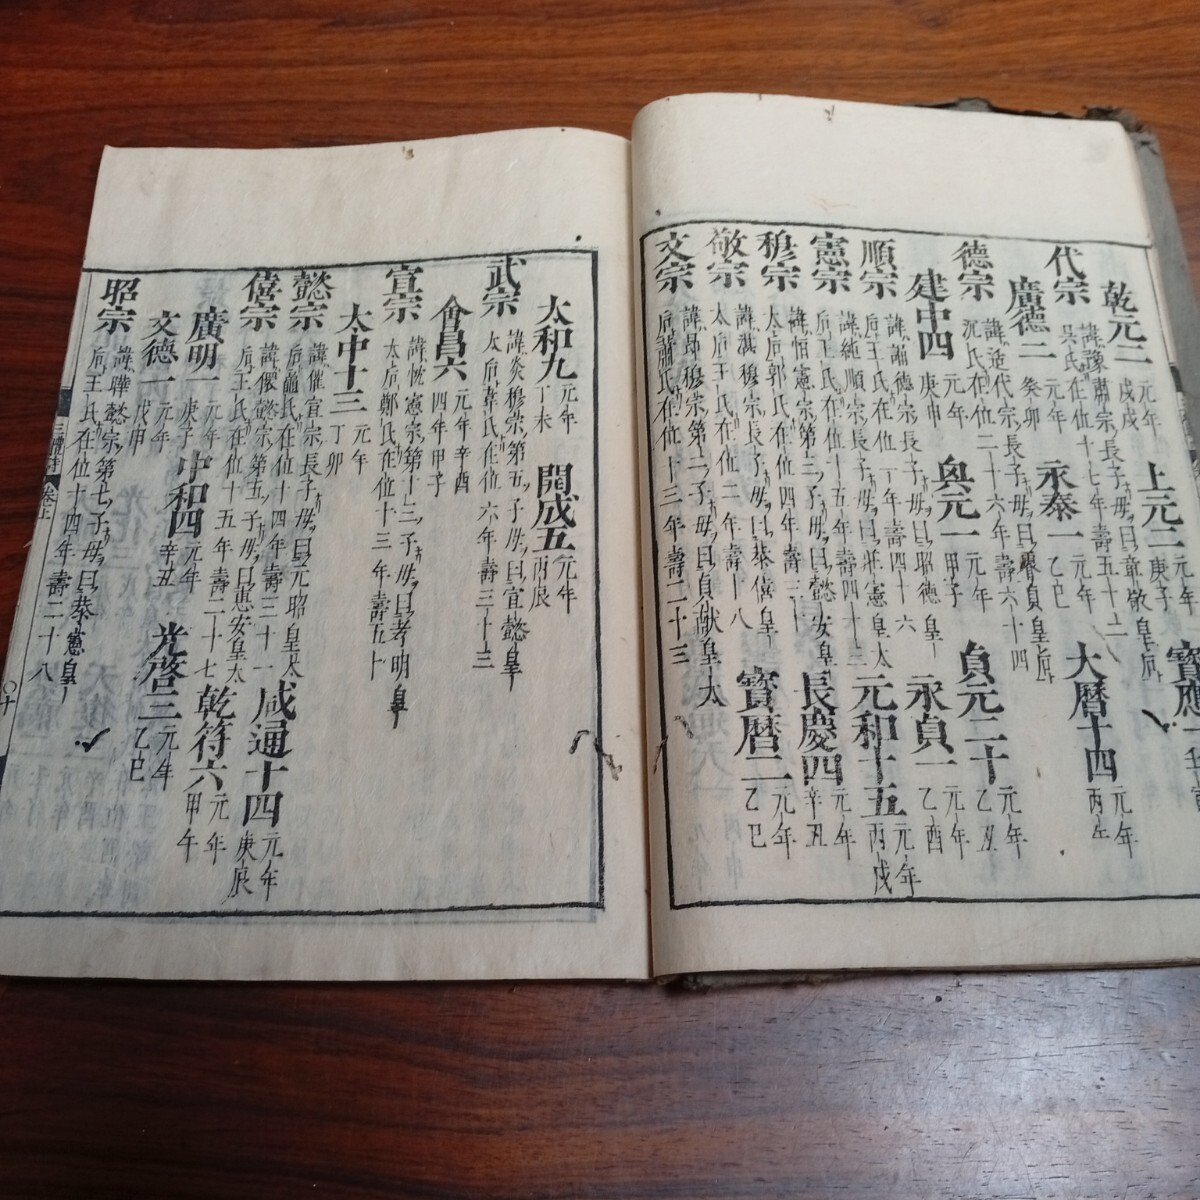 乾元二 元年戊戌 上元二 元年庚子 寶應
代宗 諱豫肅宗長子母曰章敬皇后吳氏在位十七年壽五十二
廣德二 元年癸卯 永泰一 元年乙巳 大曆十四 元年丙午
德宗 諱适代宗長子母曰睿貞皇后沈氏在位二十六年壽六十四
建中四 元年庚申 興元一 元年甲子 貞元二十 元年乙丑
順宗 諱誦德宗長子母曰昭德皇后王氏在位一年壽四十六 永貞一 元年乙酉
憲宗 諱純順宗長子母曰莊憲皇太后王氏在位十五年壽四十三 元和十五 元年丙戌
穆宗 諱恒憲宗第三子母曰懿安皇太后郭氏在位四年壽三十 長慶四 元年辛丑
敬宗 諱湛穆宗長子母曰恭僖皇太后王氏在位二年壽十八 寶曆二 元年乙巳
文宗 諱昂穆宗第二子母曰貞献皇太后蕭氏在位十三年壽三十三
太和九 元年丁未 開成五 元年丙辰
武宗 諱炎穆宗第五子母曰宣懿皇太后韋氏在位六年壽三十三
會昌六 元年辛酉四年甲子
宣宗 諱忱憲宗第十三子母曰孝明皇太后鄭氏在位十三年壽五十
太中十三 元年丁卯
懿宗 諱漼宣宗長子母曰元昭皇太后鼂氏在位十四年壽三十一 咸通十四 元年庚辰
僖宗 諱儇懿宗第五子母曰惠安皇太后王氏在位十五年壽二十七 乾符六 元年甲午
廣明一 元年庚子 中和四 元年辛丑 光啓三 元年乙巳
文德一 元年戊申
昭宗 諱曄懿宗第七子母曰恭憲皇后王氏在位十四年壽三十八
卷上